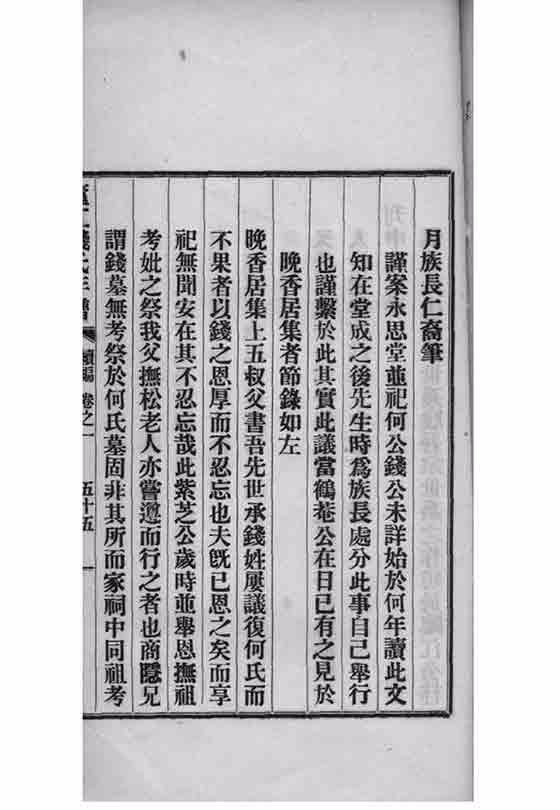 月族長仁裔筆
謹案永思堂並祀何公錢公未詳始於何年讀此文
知在堂成之後先生時爲族長處分此事自己舉行
也謹繫於此其實此議當鶴菴公在日已有之見於
晚香居集者節錄如左
晚香居集上五叔父書吾先世承錢姓屢議復何氏而
不果者以錢之恩厚而不忍忘也夫旣已恩之矣而享
祀無聞安在其不忍忘哉此紫芝公歲時並舉恩撫祖
考妣之祭我父撫松老人亦嘗遵而行之者也商隱兄
謂錢墓無考祭於何氏墓固非其所而家祠中同祖考
錢氏年譜 續編 卷之一 五十五